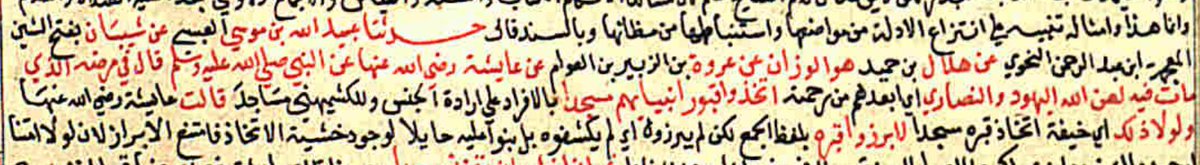 وانما هذا وامثاله تنبيه على انتزاع الادلة من مواضعها واستنباطها من مظانها وبالسند قال حدثنا عبيد الله بن موسى العبسي عن شيبان بفتح الشين
المعجمة ابن عبد الرحمن النحوي عن هلال بن حميد هو الوزان عن عروة بن الزبير بن العوام عن عايشة رضي الله عنها عن النبي صلى الله عليه وسلم قال في مرضه الذي
مات فيه لعن الله اليهود والنصارى اي ابعدهم من رحمته اتخذوا قبور انبيائهم مسجدا بالافراد على ارادة الجنس وللكشميهني مساجد قالت عايشة رضي الله عنها
ولولا ذلك اي خيفة اتخاذ قبره مسجدا لابرزوا قبره بلفظ الجمع لكن لم يبرزوه اي لم يكشفوه بل بنوا عليه حايلا لوجود خشية الاتخاذ فامتنع الابراز لان لولا امتنا